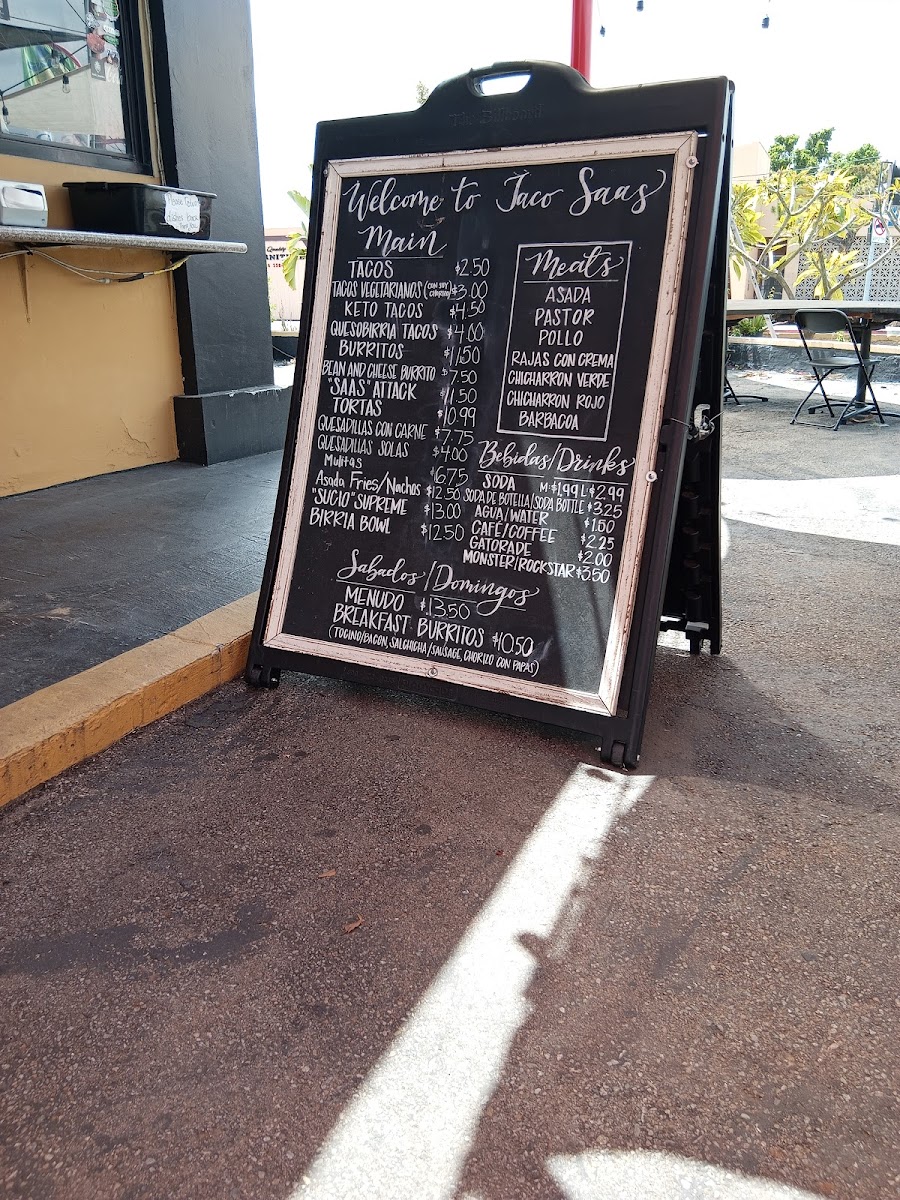 The Billboard
Welcome to Taco Saas
Main
TACOS $2.50
TACOS VEGETARIANOS (CON SOY CHORIZO) $3.00
KETO TACOS $4.50
QUESOBIRRIA TACOS $4.00
BURRITOS $11.50
BEAN AND CHEESE BURRITO $7.50
"SAAS" ATTACK $11.50
TORTAS $10.99
QUESADILLAS CON CARNE $7.75
QUESADILLAS SOLAS $4.00
Mulitas $6.75
Asada Fries/Nachos $12.50
"SUCIO" SUPREME $13.00
BIRRIA BOWL $12.50
Meats
ASADA
PASTOR
POLLO
RAJAS CON CREMA
CHICHARRON VERDE
CHICHARRON ROJO
BARBACOA
Bebidas/Drinks
SODA M:$1.99 L:$2.99
SODA DE BOTELLA/SODA BOTTLE $3.25
AGUA/WATER $1.50
CAFÉ/COFFEE $2.25
GATORADE $2.00
MONSTER/ROCKSTAR $3.50
Sabados/Domingos
MENUDO $13.50
BREAKFAST BURRITOS $10.50
(TOCINO/BACON, SALCHICHA/SAUSAGE, CHORIZO CON PAPAS)
Please
dishes
Quality